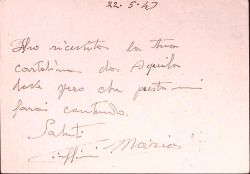 22-5-47
Ho ricevuto la tua
cartolina da Aquila
dove spero che presto mi
farai contento.
Saluti
Mario